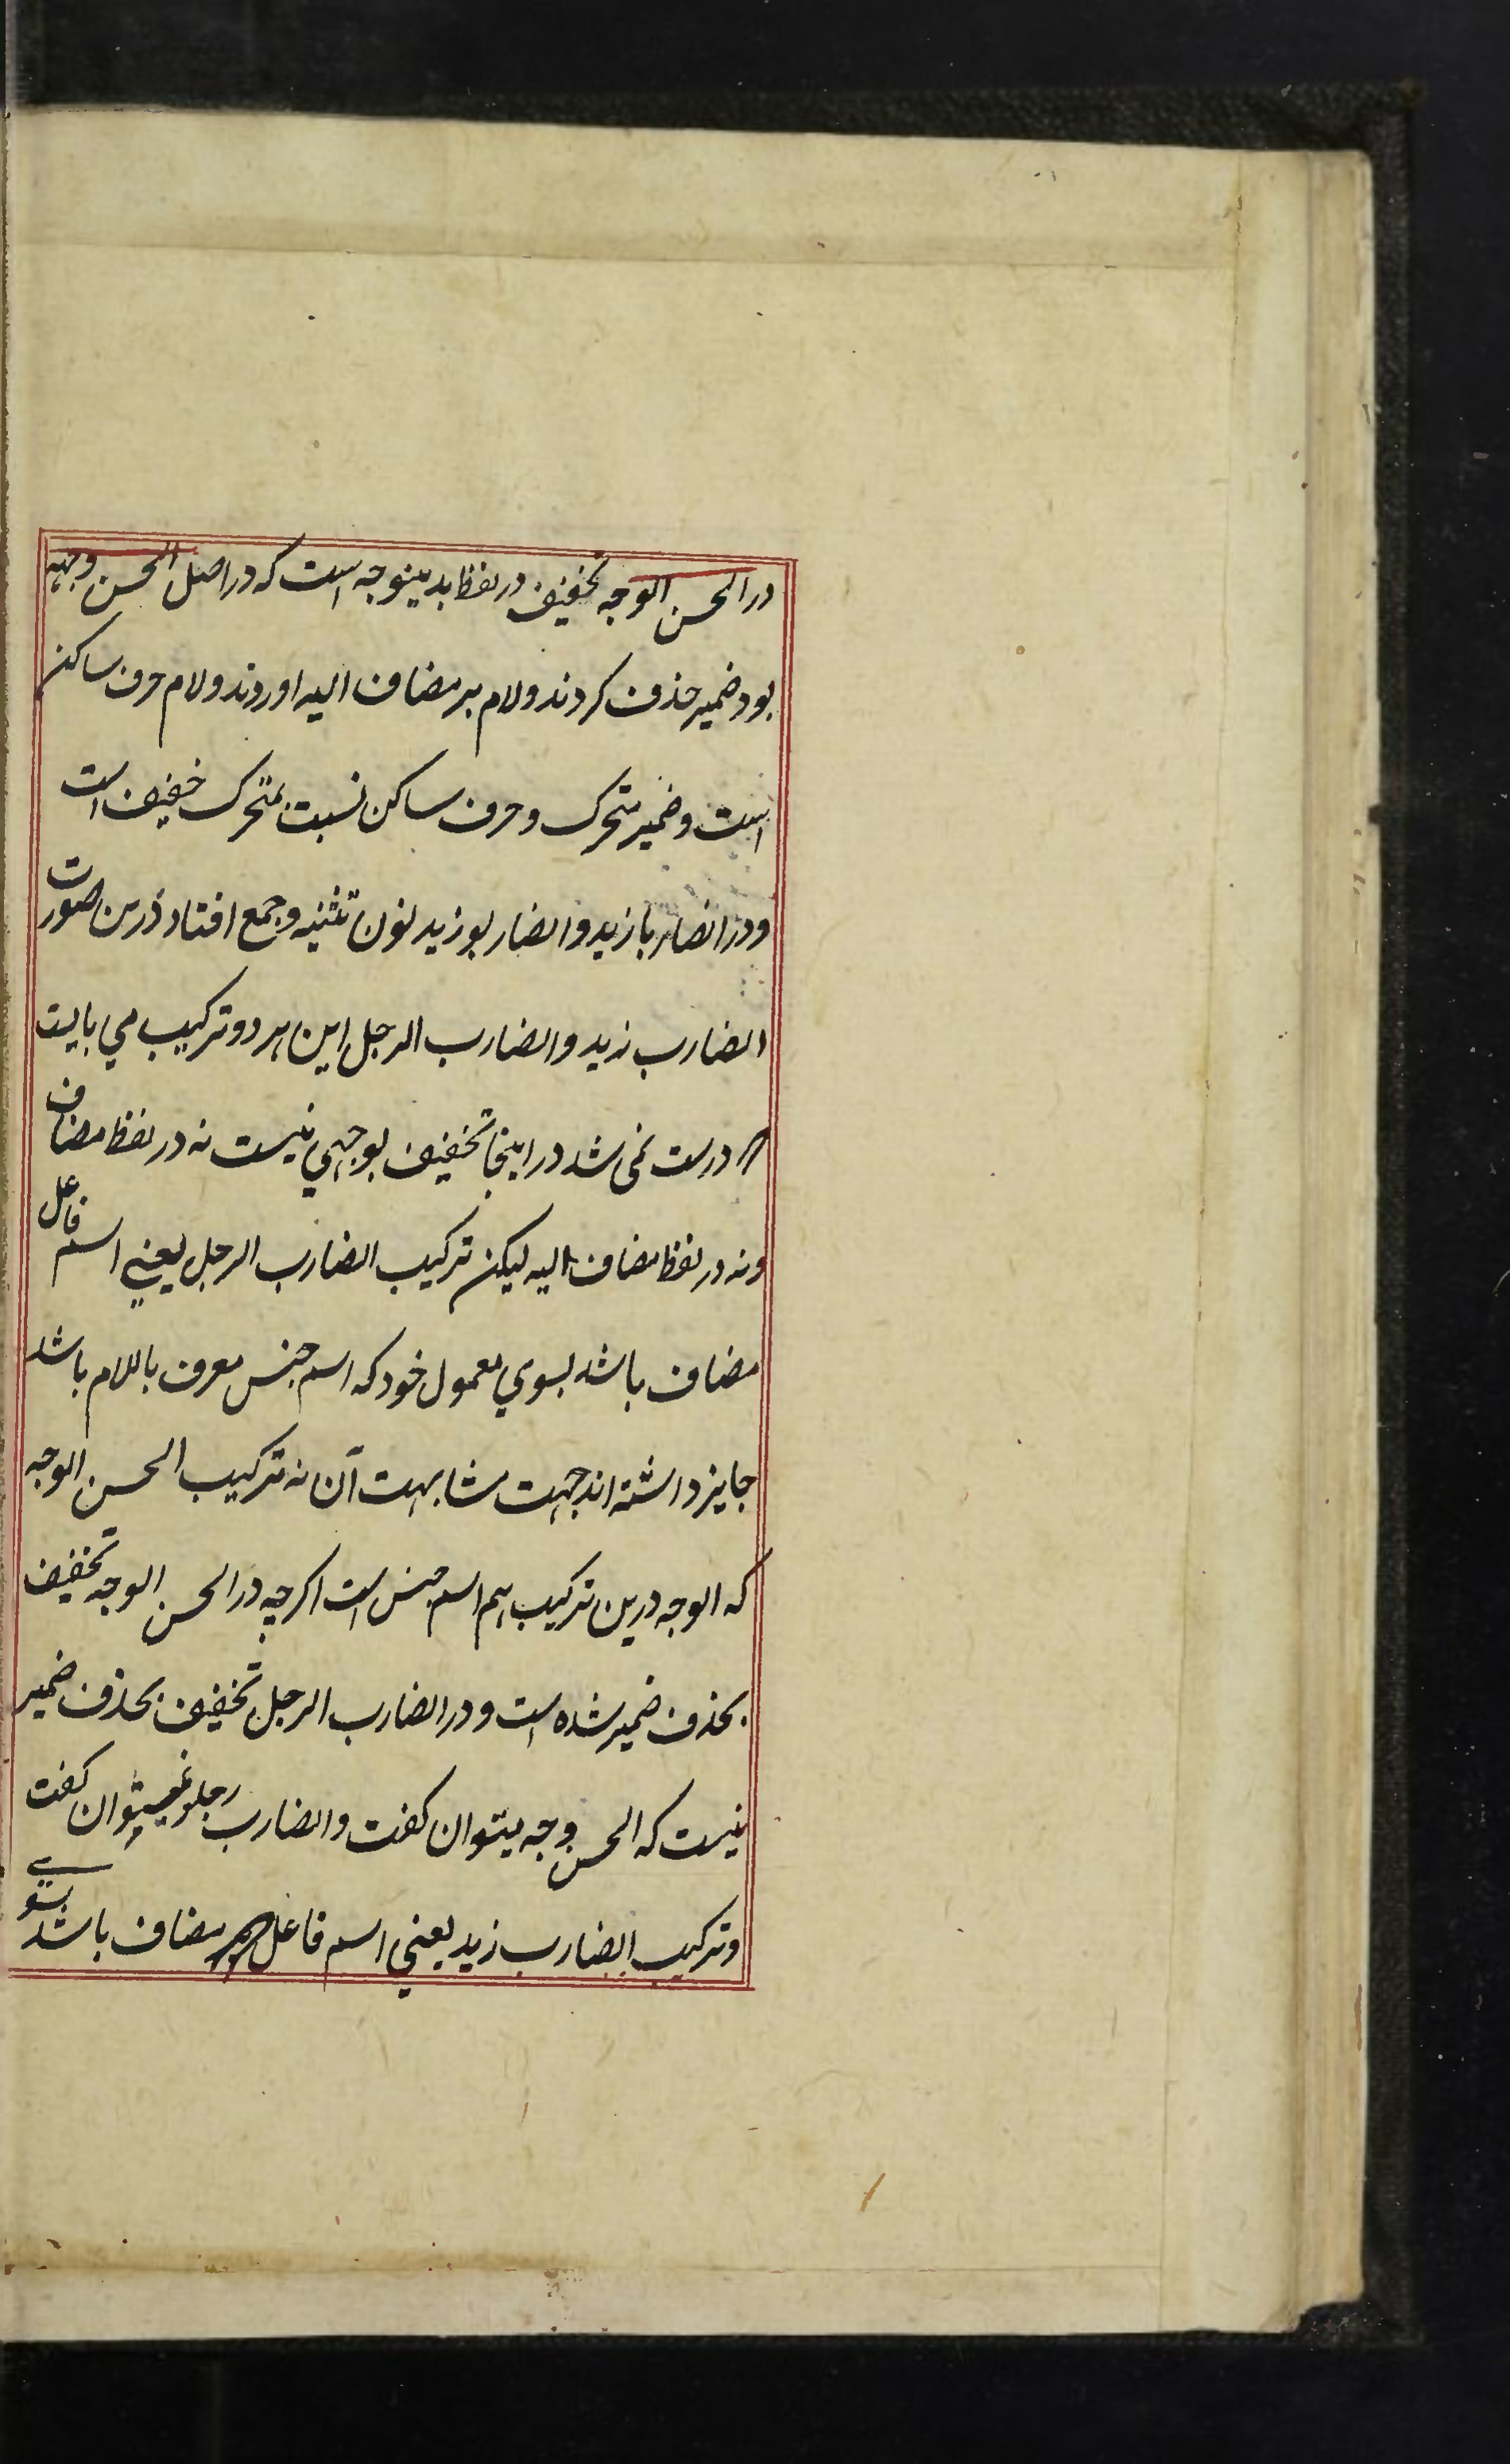 در الحسن الوجه تخفیف در لفظ بدینوجه است که در اصل الحسن وجهه
بود ضمیر حذف کردند و لام بر مضاف الیه اوردند و لام حرف ساکن
است و ضمیر متحرک و حرف ساکن نسبت بمتحرک خفیف است
و در الضاربا زید و الضاربو زید نون تثنیه و جمع افتاد درین صورت
الضارب زید و الضارب الرجل این هر دو ترکیب می بایست
درست نمی شد در اینجا تخفیف بوجهی نیست نه در لفظ مضاف
و نه در لفظ مضاف الیه لیکن ترکیب الضارب الرجل یعنی اسم فاعل
مضاف باشد بسوی معمول خود که اسم جنس معرف باللام باشد
جایز داشته اند جهت مشابهت آن نه ترکیب الحسن الوجه
که الوجه درین ترکیب هم اسم جنس است اکرچه در الحسن الوجه تخفیف
بحذف ضمیر شده است و در الضارب الرجل تخفیف بحذف ضمیر
نیست که الحسن وجه میتوان کفت و الضارب رجلو نمیتوان کفت
و ترکیب الضارب زید یعنی اسم فاعل مضاف باشد بسوی